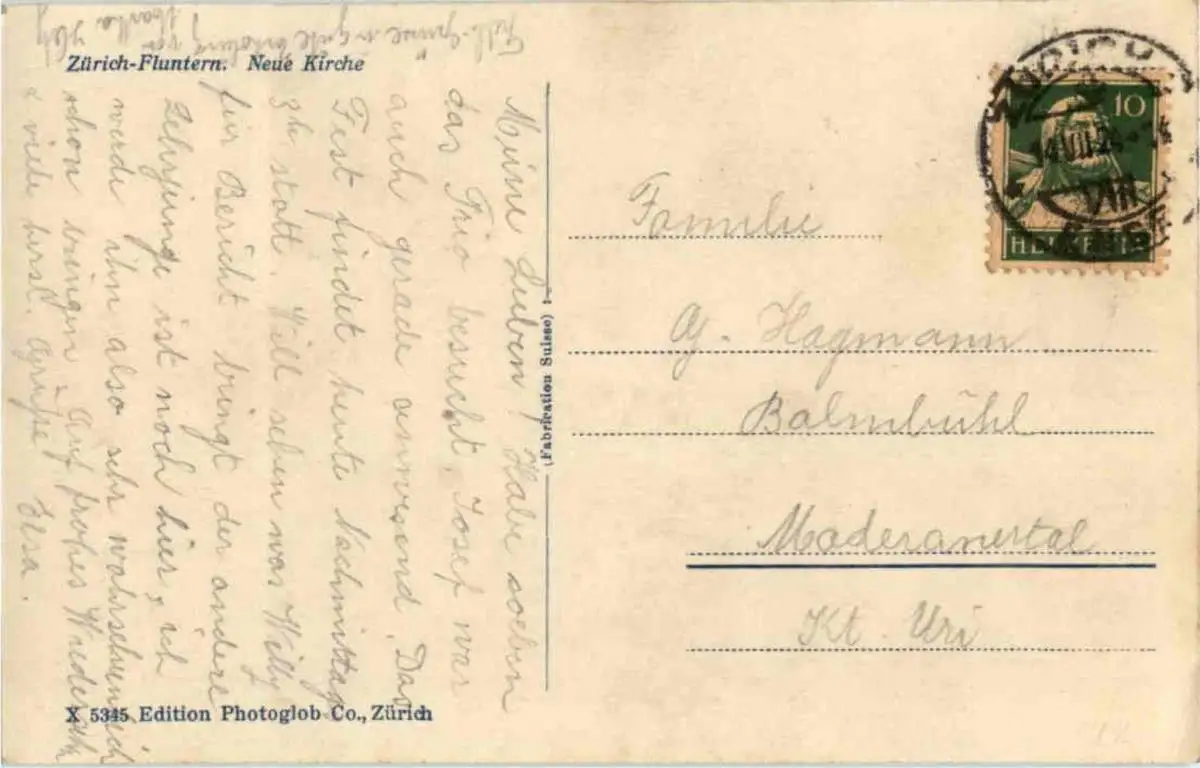 Zürich-Fluntern. Neue Kirche
Meine Lieben! Habe soeben
das Trio besucht, Josef war
auch gerade anwesend. Das
Fest findet heute Nachmittag
3h statt. Will sehen was Willy
für Bericht bringt der andere
ist noch hier, ich
werde ihn also sehr wahrscheinlich
schon bringen. Auf frohes Wiedersehn
& viele herzl. Grüsse Elsa.
(Fabrication Suisse)
X 5345 Edition Photoglob Co., Zürich
Familie
G. Hagmann
Balmbühl
Maderanertal
Kt. Uri
10
HELVETIA
ZÜRICH